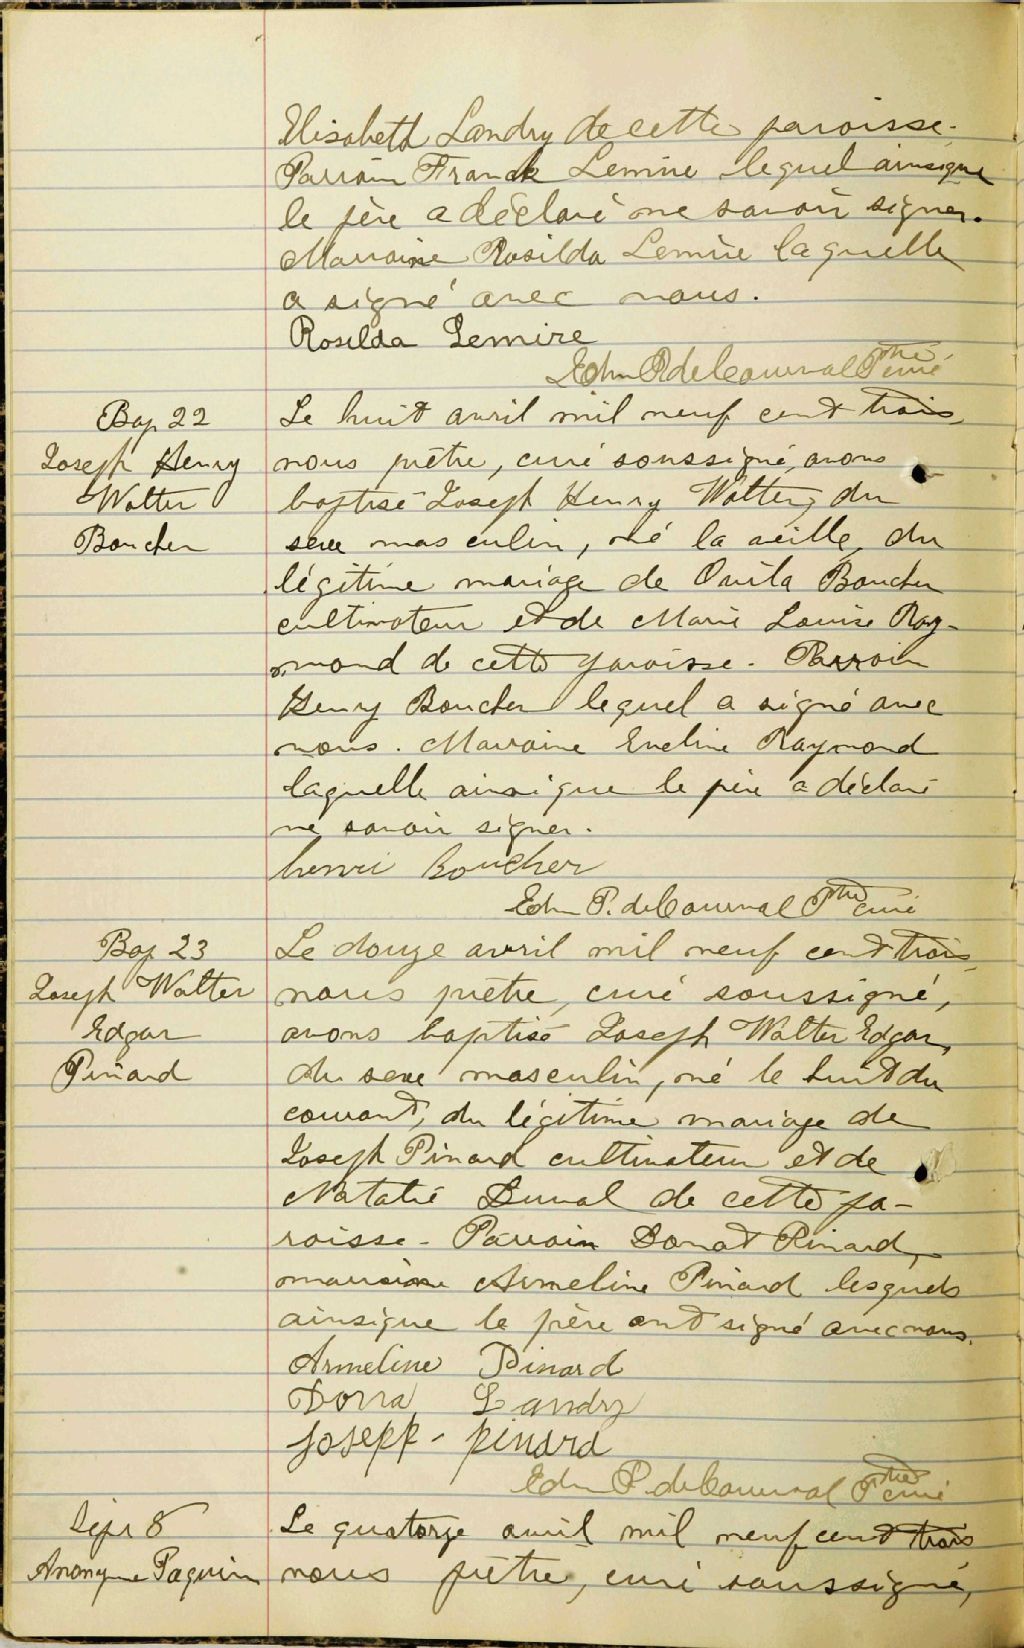 Elisabeth Landry de cette paroisse.
Parrain Franck Lemire lequel ainsique
le père a déclaré ne savoir signer.
Marraine Rosilda Lemire laquelle
a signé avec nous.
Rosilda Lemire
Edm P. de Courval Ptre curé
Bap 22
Joseph Henry
Walter
Boucher
Le huit avril mil neuf cent trois,
nous prêtre, curé soussigné, avons
baptisé Joseph Henry Walter, du
sexe masculin, né la veille, du
légitime mariage de Ovila Boucher
cultivateur et de Marie Louise Ray-
mond de cette paroisse. Parrain
Henry Boucher lequel a signé avec
nous. Marraine Eveline Raymond
laquelle ainsi que le père a déclaré
ne savoir signer.
henri Boucher
Edm P. de Courval Ptre curé
Bap 23
Joseph Walter
Edgar
Pinard
Le douze avril mil neuf cent trois,
nous prêtre, curé soussigné,
avons baptisé Joseph Walter Edgar,
du sexe masculin, né le huit du
courant, du légitime mariage de
Joseph Pinard cultivateur et de
Natalie Duval de cette pa-
roisse. Parrain Donat Pinard,
marraine Armeline Pinard lesquels
ainsique le père ont signé avec nous.
Armeline Pinard
Dona Landry
Joseph - pinard
Edm P. de Courval Ptre curé
Sépr 8
Anonyme Paquin
Le quatorze avril mil neuf cent trois
nous prêtre, curé soussigné,